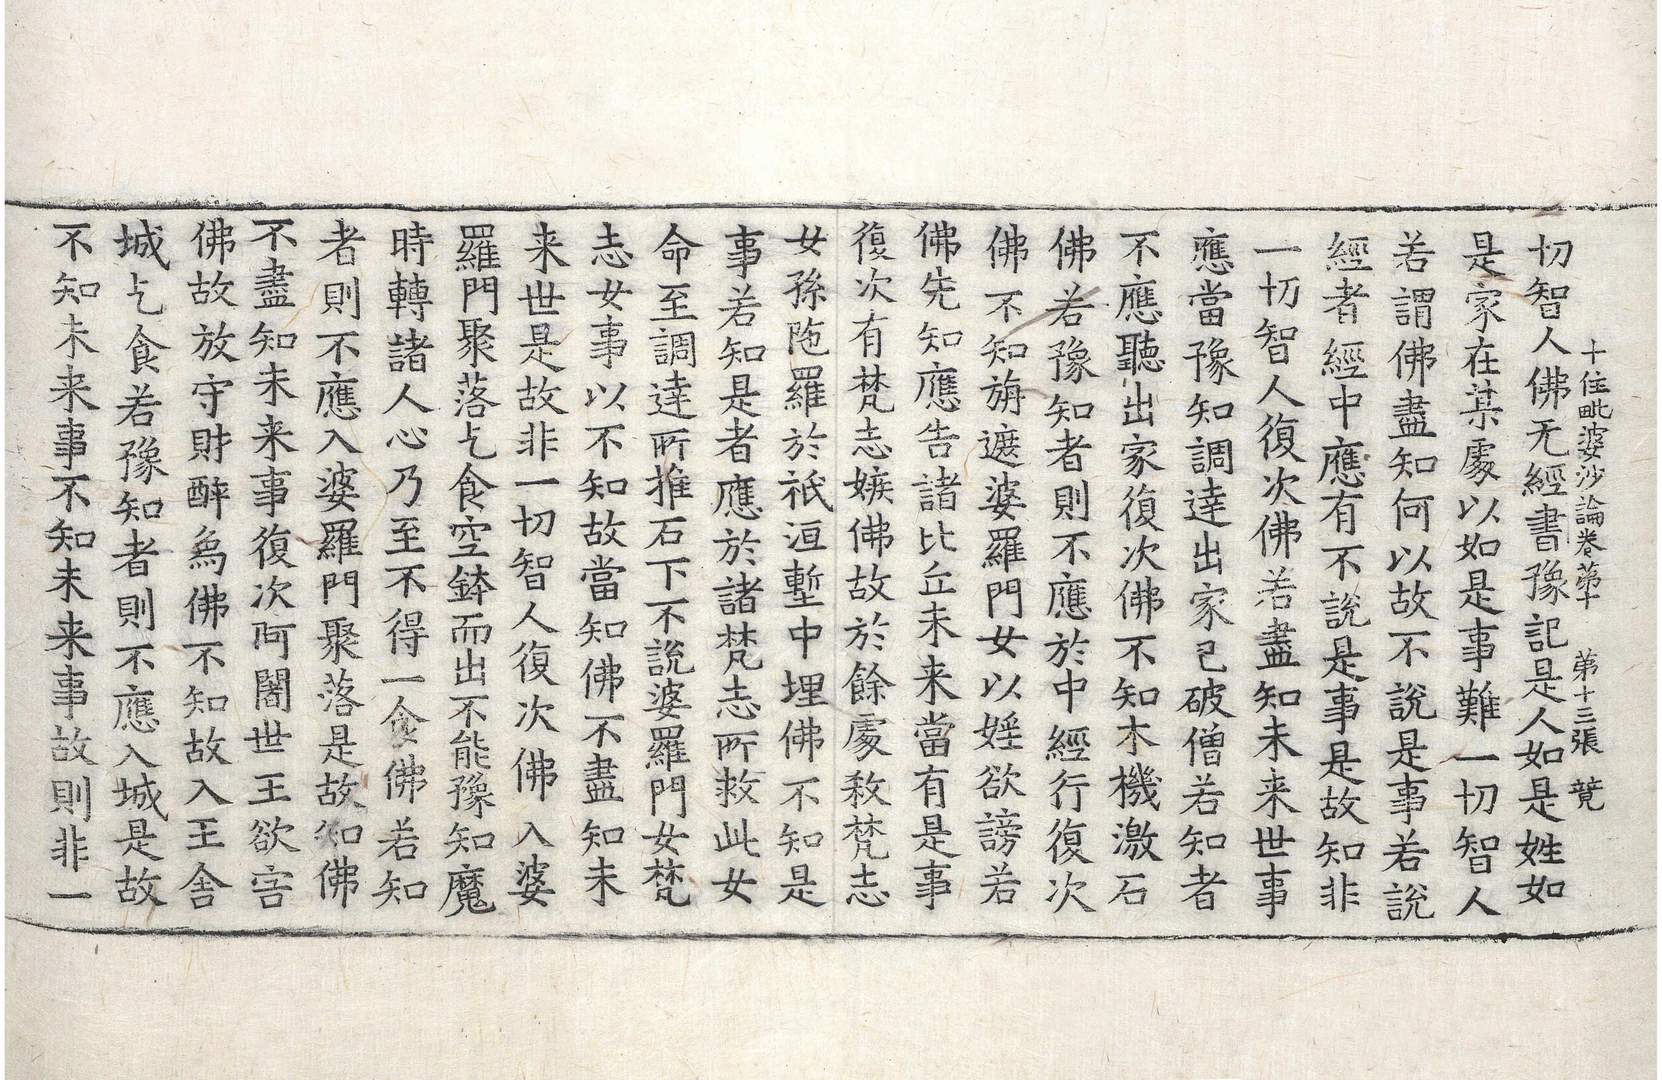 十住毗婆沙論卷苐十　苐十三張　競
切智人佛无經書豫記是人如是姓如
是家在某處以如是事難一切智人
若謂佛盡知何以故不說是事若說
經者經中應有不說是事是故知非
一切智人復次佛若盡知未来世事
應當豫知調達出家已破僧若知者
不應聽出家復次佛不知木機激石
佛若豫知者則不應於中經行復次
佛不知旃遮婆羅門女以婬欲謗若
佛先知應告諸比丘未来當有是事
復次有梵志嫉佛故於餘處敎梵志
女孫陁羅於祇洹塹中埋佛不知是
事若知是者應於諸梵志所救此女
命至調達所推石下不說婆羅門女梵
志女事以不知故當知佛不盡知未
来世是故非一切智人復次佛入婆
羅門聚落乞食空鉢而出不能豫知魔
時轉諸人心乃至不得一食佛若知
者則不應入婆羅門聚落是故知佛
不盡知未来事復次阿闍世王欲害
佛故放守財醉爲佛不知故入王舍
城乞食若豫知者則不應入城是故
不知未来事不知未来事故則非一